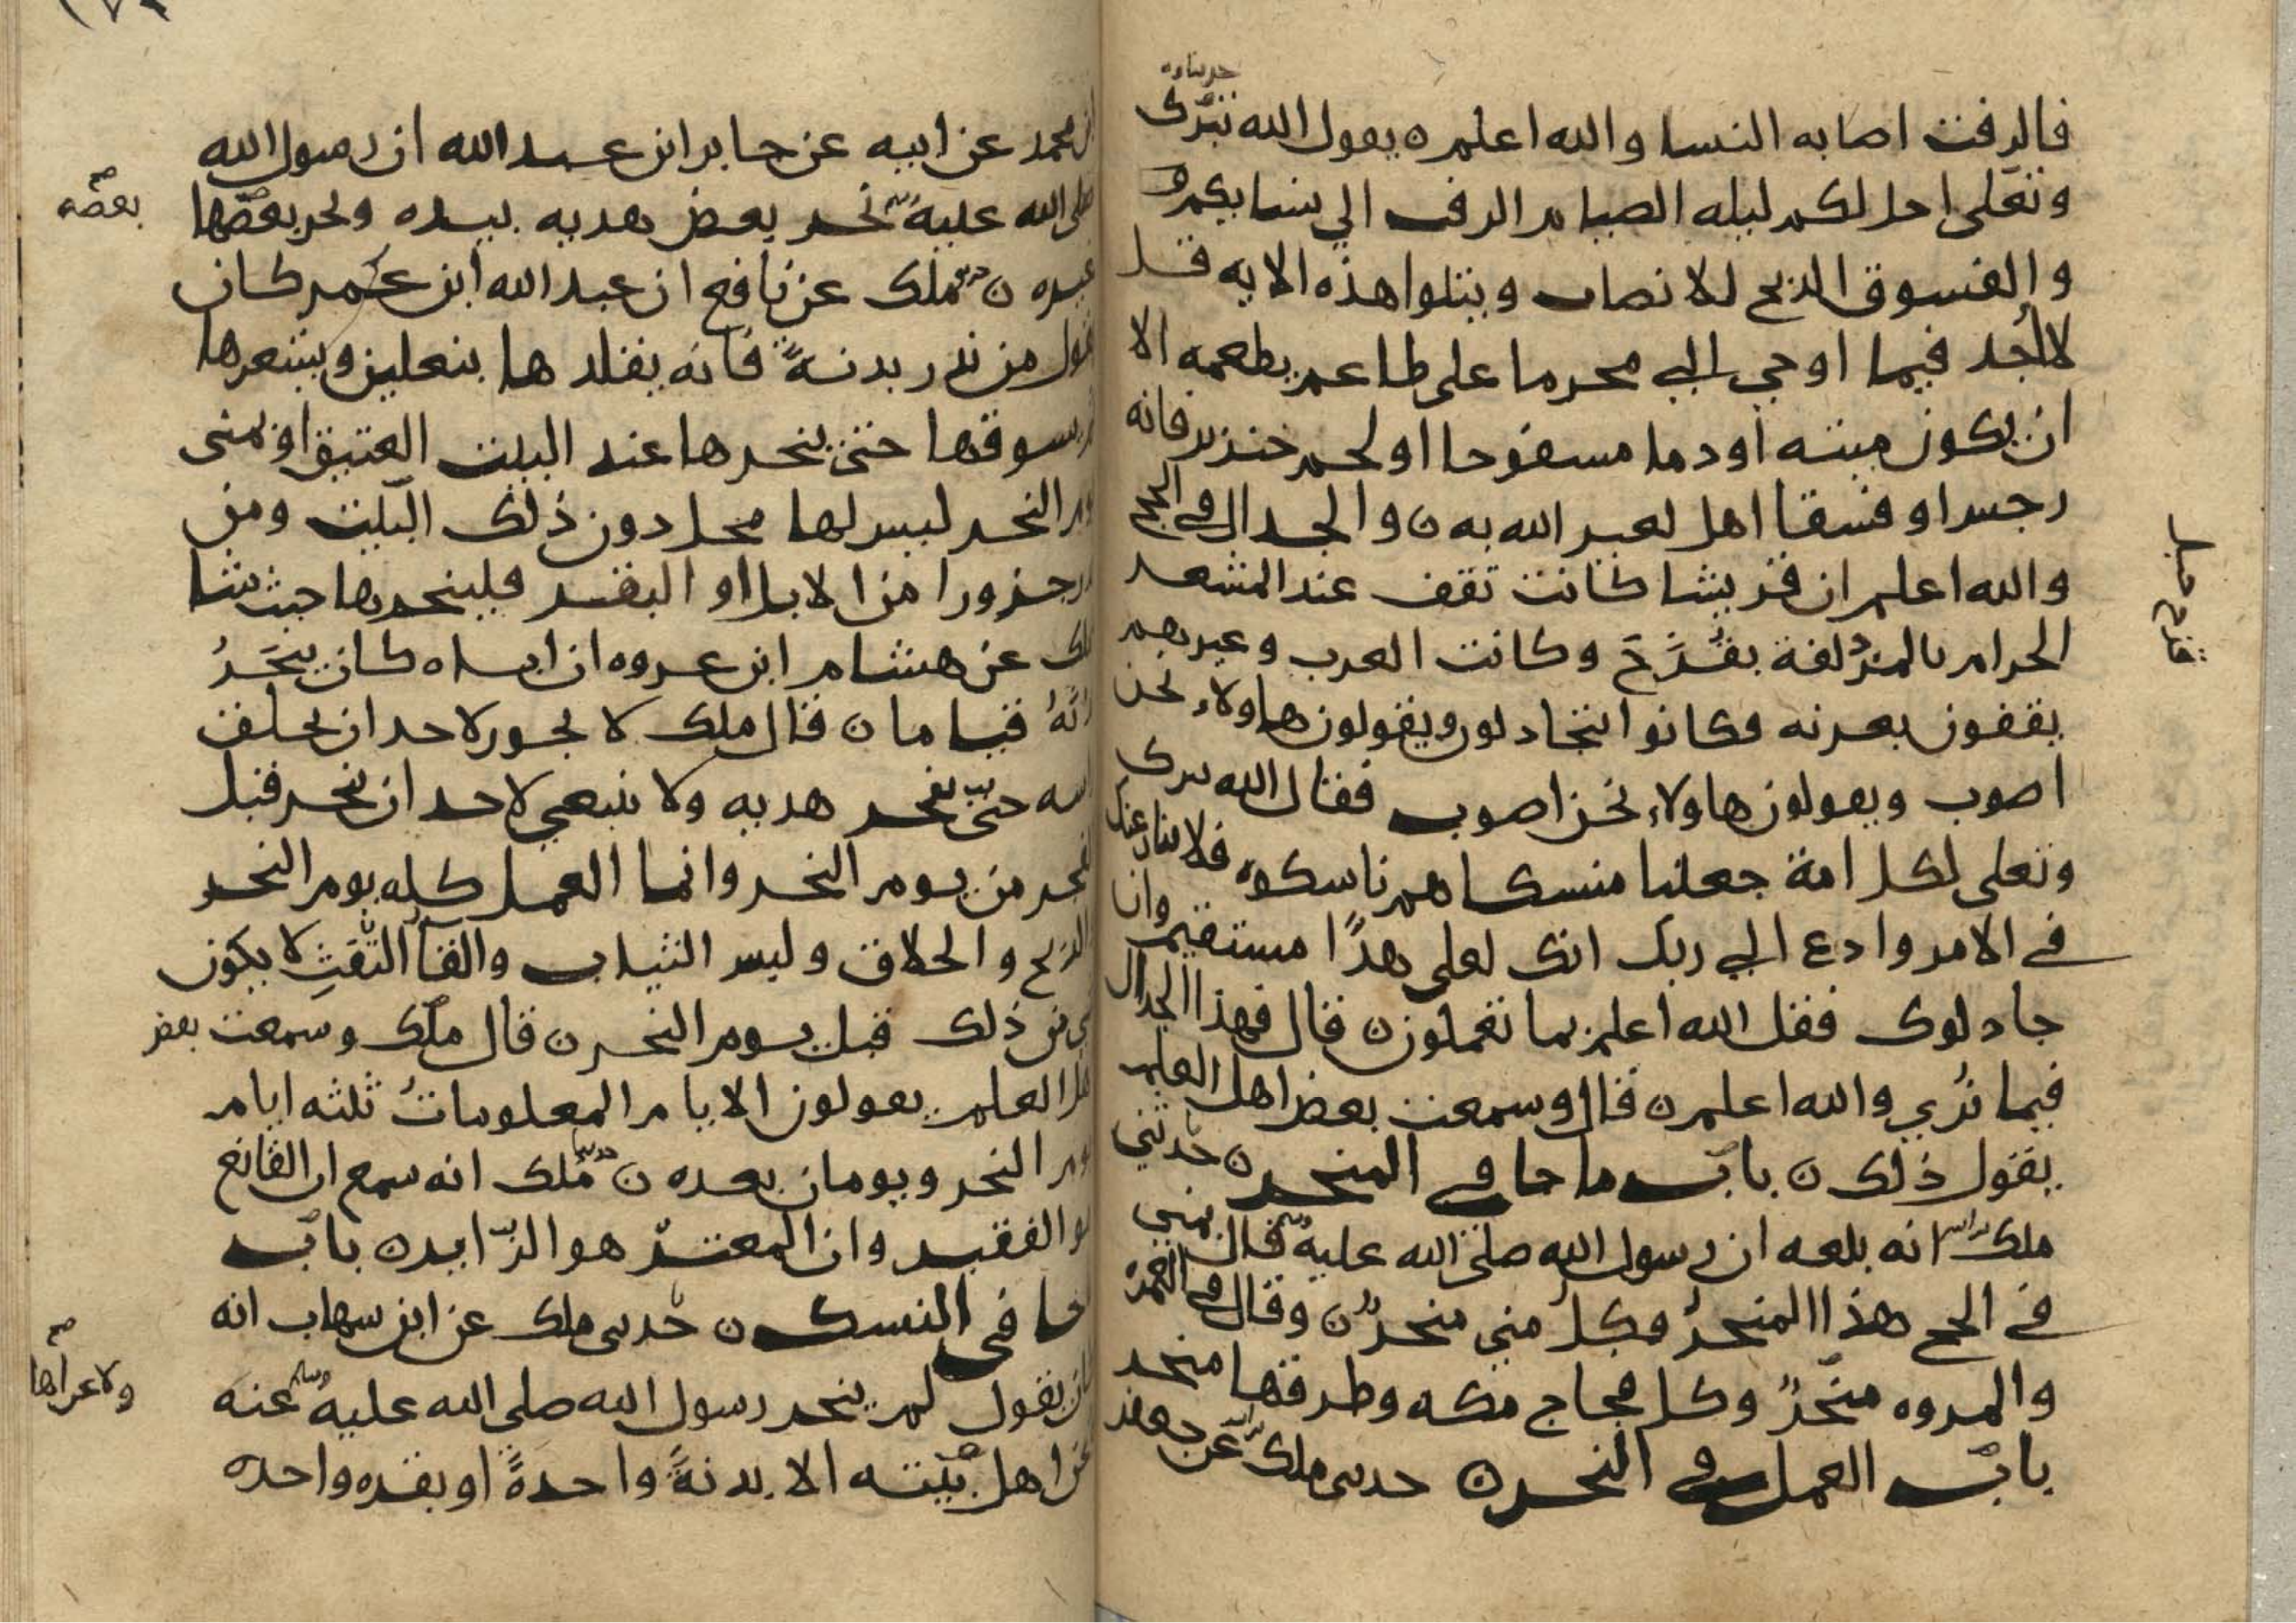 فالرفت اصابه النسا والله اعلم ن يقول الله تبرك
وتعلى احل لكم ليله الصيام الرفث الي نسايكم
والفسوق الذبح للانصاب ويتلوا هذه الايه قل
لا اجد فيما اوحي الي محرما على طاعم يطعمه الا
ان يكون ميته او دما مسفوحا او لحم خنزير فانه
رجس او فسقا اهل لغير الله به ن والجدال في الحج
والله اعلم ان قريشا كانت تقف عند المشعر
الحرام بالمزدلفة بقُزَحَ وكانت العرب وغيرهم
يقفون بعرفه فكانوا يتجادلون ويقولون هاولاء نحن
اصوب ويقولون هاولاء نحن اصوب فقال الله تبرك
وتعلى لكل امة جعلنا منسكا هم ناسكوه فلا ينازعنك
في الامر وادع الي ربك انك لعلى هدًا مستقيم وان
جادلوك فقل الله اعلم بما تعملون ن قال فهذا الجدال
فيما نُري والله اعلم ن قال وسمعت بعض اهل العلم
يقول ذلك ن باب ما جا في المنحر ن حدثني
ملك انه بلغه ان رسول الله صلى الله عليه قال بمني
في الحج هذا المنحرُ وكل مني منحرٌ ن وقال في العمرة
والمروه منحرٌ وكل فجاج مكه وطرقها منحر
باب العمل في النحر ن حدثني ملك عن جعفر
قزح جبل
ابن محمد عن ابيه عن جابر ابن عبد الله ان رسول الله
صلى الله عليه نحر بعض هديه بيده ونحر بعضها
غيره ن ملك عن نافع ان عبد الله ابن عمر كان
يقول من نذر بدنةً فانه يقلدها بنعلين ويشعرها
ثم يسوقها حتى ينحرها عند البيت العتيق او بمنى
يوم النحر ليس لها محل دون ذلك البيت ومن
نذر جزورا من الابل او البقر فلينحرها حيث شا
ملك عن هشام ابن عروه ان اباه كان ينحَرُ
بدنه قياما ن قال ملك لا يجوز لاحد ان يحلق
راسه حتى ينحر هديه ولا ينبغي لاحد ان ينحر قبل
الفجر من يوم النحر وانما العمل كله يوم النحر
الذبح والحلاق ولبس الثياب والقآ التفثِ لا يكون
شي من ذلك قبل يوم النحر ن قال ملك وسمعت بعض
اهل العلم يقولون الايام المعلوماتُ ثلثه ايام
يوم النحر ويومان بعده ن ملك انه سمع ان القانع
هو الفقير وان المعتر هو الزاير ن باب
ما جا في النسك ن حدثني ملك عن ابن شهاب انه
كان يقول لم ينحر رسول الله صلى الله عليه عنه
وعن اهل بيته الا بدنةً واحدةً او بقره واحده
بعضه